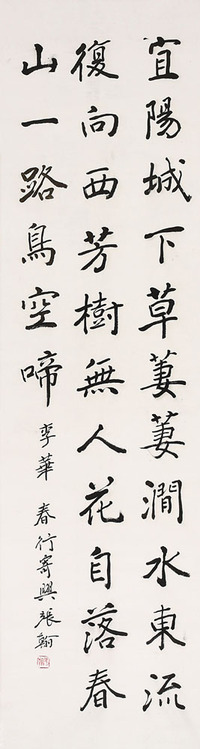 宜陽城下草萋萋澗水東流
復向西芳樹無人花自落春
山一路鳥空啼
李華 春行寄興 張翰